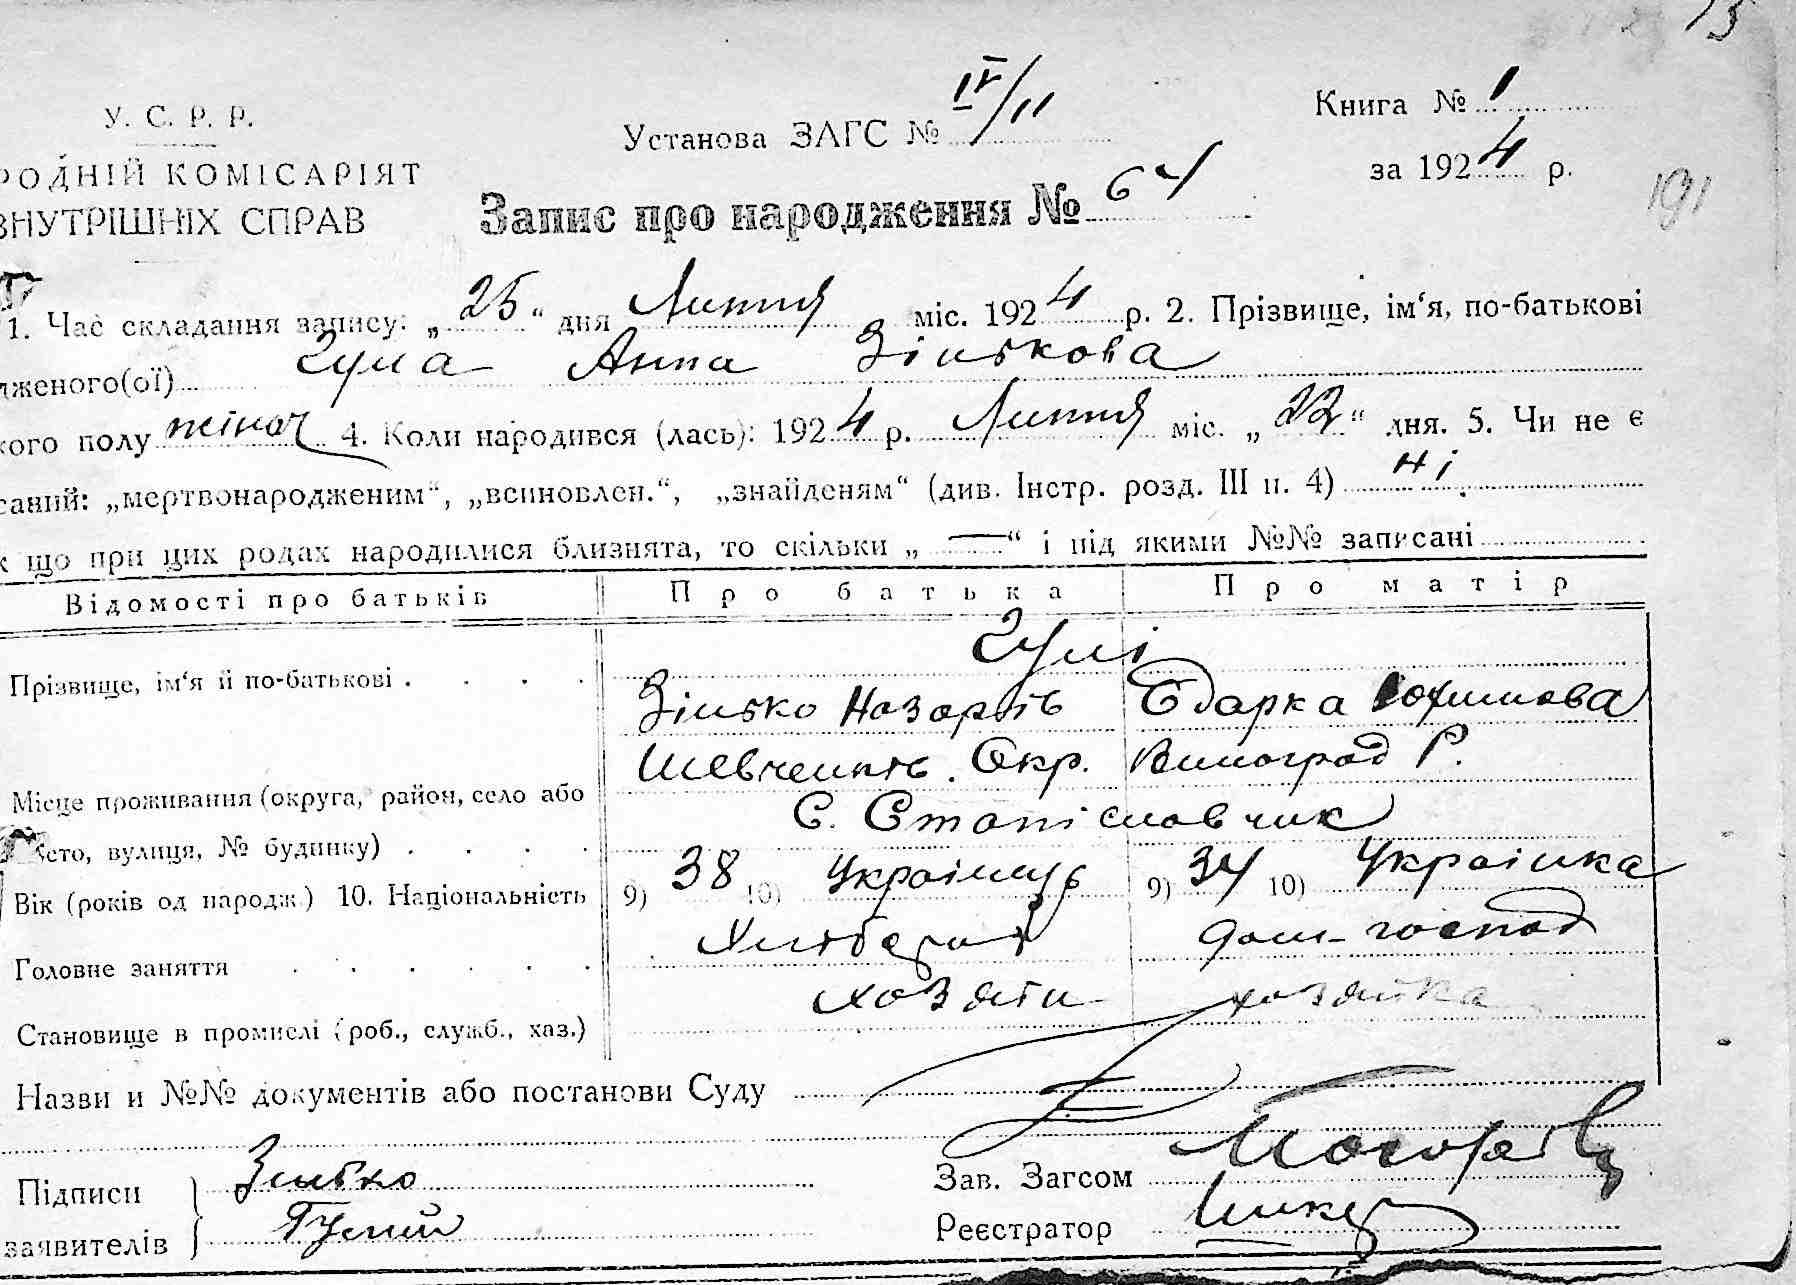 15
У. С. Р. Р.
РОДНІЙ КОМІСАРІЯТ
ВНУТРІШНІХ СПРАВ
Установа ЗАГС № IV/11
Книга № 1
за 1924 р.
191
Запис про народження № 64
1. Час складання запису: „25“ дня Липня міс. 1924 р. 2. Прізвище, ім‘я, по-батькові
дженого(ої) Гула Анна Зінькова
кого полу жіноч 4. Коли народився (лась): 1924 р. Липня міс. „22“ дня. 5. Чи не є
саний: „мертвонародженим“, „всиновлен.“, „знайденям“ (див. Інстр. розд. III п. 4) ні.
к що при цих родах народилися близнята, то скільки „—“ і під якими №№ записані
Відомості про батьків Про батька Про матір
Гулі
Прізвище, ім‘я й по-батькові Зінько Назарів Одарка Юхимова
Шевченків. Окр. Виноград Р.
Місце проживання (округа, район, село або
С. Станіславчик
місто, вулиця, № будинку)
Вік (років од народж.) 10. Національність 9) 38 10) Українець 9) 34 10) Українка
Головне заняття Хлібороб дом-господ
Становище в промислі (роб., служб., хаз.) хозяїн хозяйка
Назви и №№ документів або постанови Суду
Підписи Зінько Зав. Загсом
заявителів Гулий Реєстратор